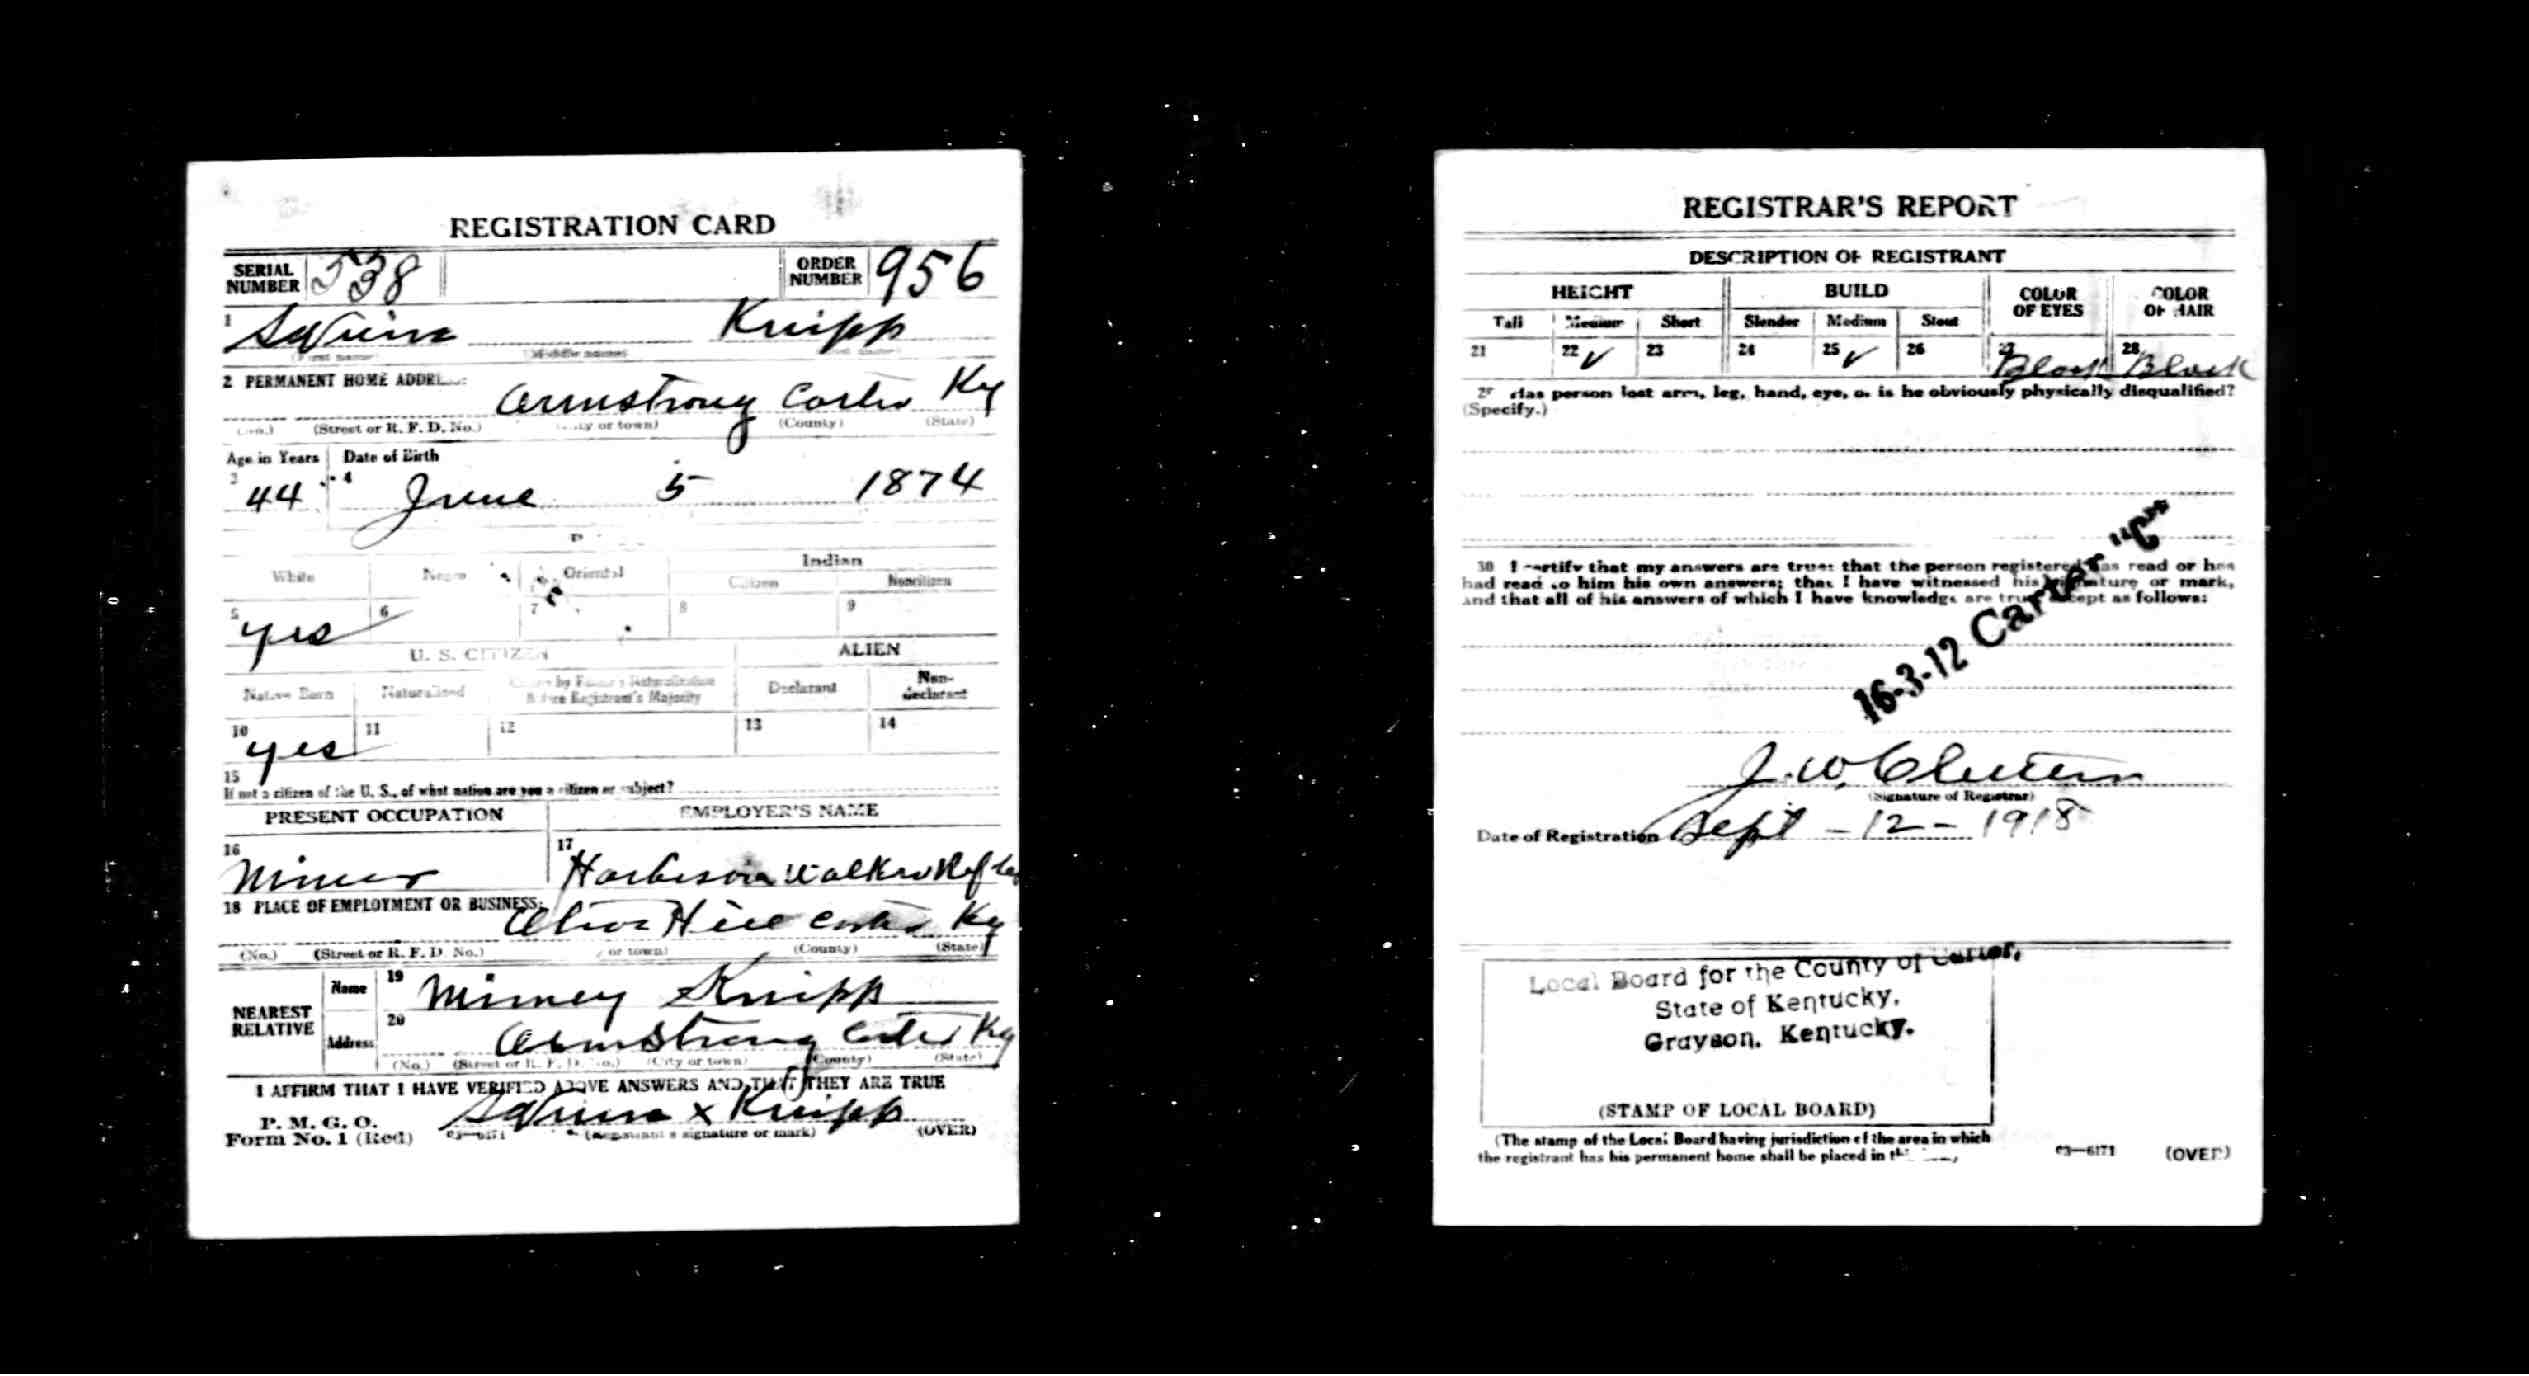 REGISTRATION CARD
SERIAL NUMBER 538 ORDER NUMBER 956
1 Knipp
(First name) (Middle name) (Last name)
2 PERMANENT HOME ADDRESS:
Armstrong Carter Ky
(No.) (Street or R. F. D. No.) (City or town) (County) (State)
Age in Years Date of Birth
3 44 4 June 5 1874
White Negro Oriental Indian
Citizen Noncitizen
5 yes 6 7 8 9
U. S. CITIZEN ALIEN
Native Born Naturalized Citizen by Father's Naturalization Before Registrant's Majority Declarant Non-declarant
10 yes 11 12 13 14
15
If not a citizen of the U. S., of what nation are you a citizen or subject?
PRESENT OCCUPATION EMPLOYER'S NAME
16 Miner 17 Harbison Walker Ref Co
18 PLACE OF EMPLOYMENT OR BUSINESS:
Olive Hill Carter Ky
(No.) (Street or R. F. D. No.) (City or town) (County) (State)
NEAREST RELATIVE
Name 19 Minney Knipp
Address 20 Armstrong Carter Ky
(No.) (Street or R. F. D. No.) (City or town) (County) (State)
I AFFIRM THAT I HAVE VERIFIED ABOVE ANSWERS AND THAT THEY ARE TRUE
P. M. G. O.
Form No. 1 (Red) 03—6171 x Knipp
(Registrant's signature or mark) (OVER)
REGISTRAR'S REPORT
DESCRIPTION OF REGISTRANT
HEIGHT BUILD COLOR OF EYES COLOR OF HAIR
Tall Medium Short Slender Medium Stout
21 22 ✓ 23 24 25 ✓ 26 27 Black 28 Black
29 Has person lost arm, leg, hand, eye, or is he obviously physically disqualified?
(Specify.)
30 I certify that my answers are true; that the person registered has read or has
had read to him his own answers; that I have witnessed his signature or mark,
and that all of his answers of which I have knowledge are true, except as follows:
16-3-12 Carter "C"
J. W.
(Signature of Registrar)
Date of Registration Sept - 12 - 1918
Local Board for the County of Carter,
State of Kentucky,
Grayson, Kentucky.
(STAMP OF LOCAL BOARD)
(The stamp of the Local Board having jurisdiction of the area in which
the registrant has his permanent home shall be placed in
03—6171 (OVER)